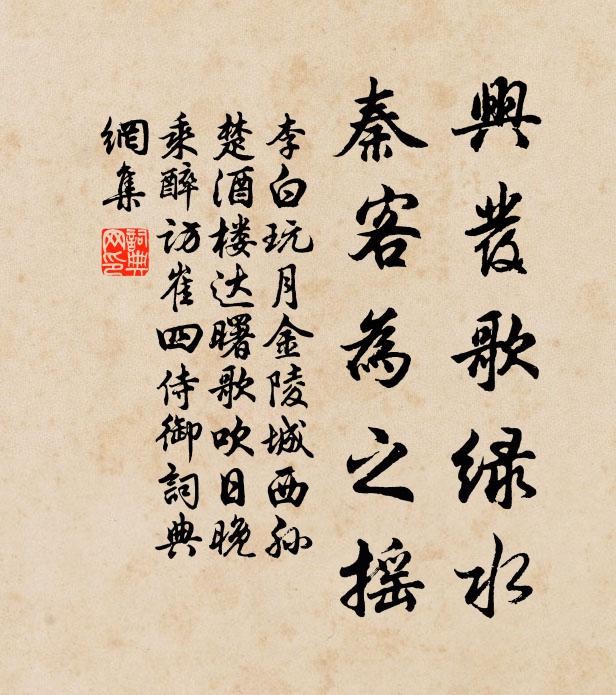 興發歌绿水
秦客為之摇
李白玩月金陵城西孙
楚酒楼达曙歌吹日晚
乘醉访崔四侍御詞典
網集
詞典网印